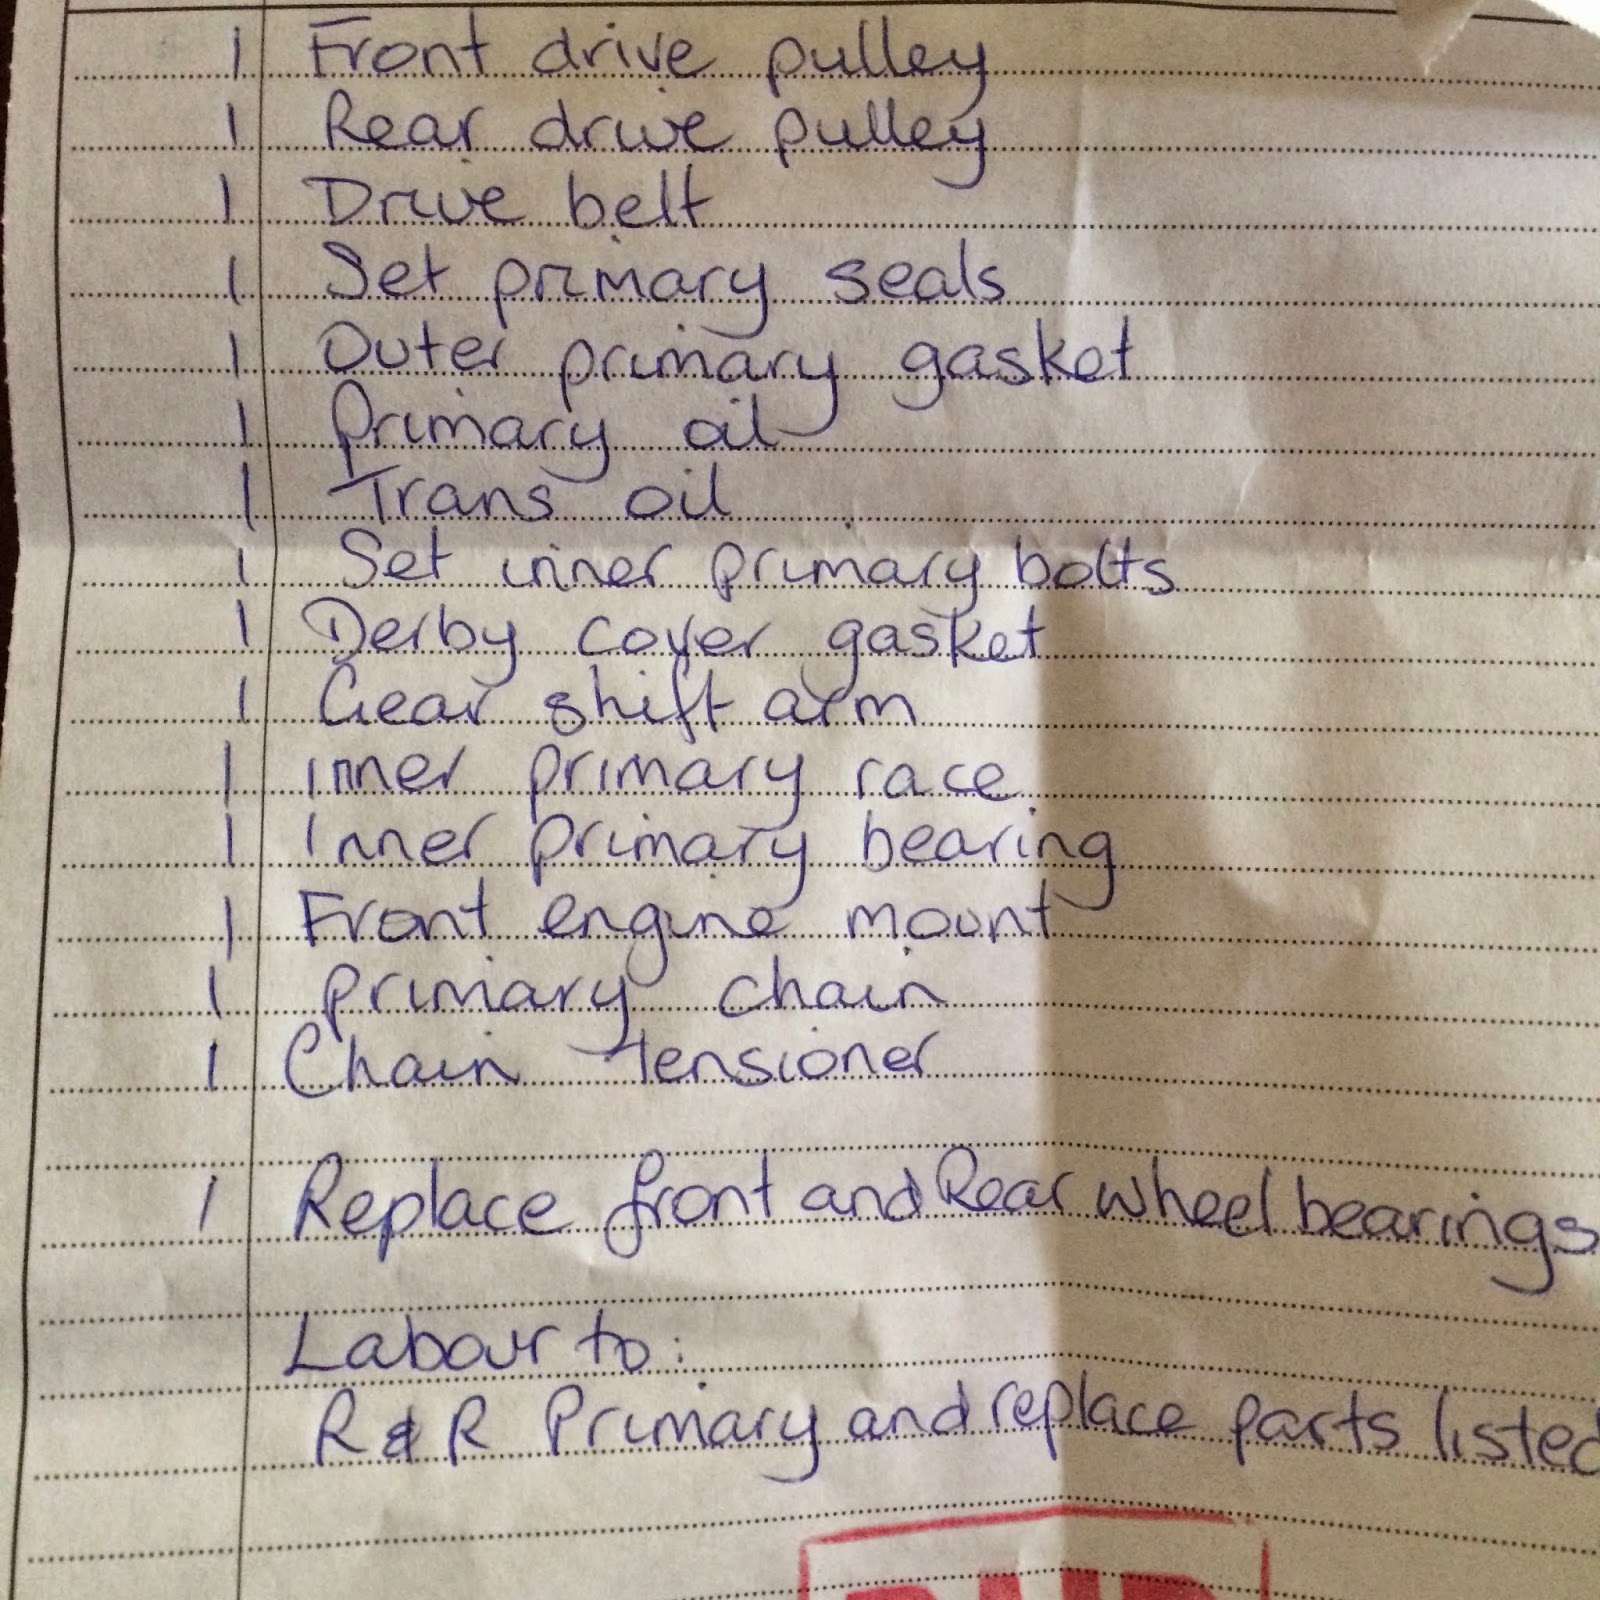 1 Front drive pulley
1 Rear drive pulley
1 Drive belt
1 Set primary seals
1 Outer primary gasket
1 Primary oil
1 Trans oil
1 Set inner primary bolts
1 Derby cover gasket
1 Gear shift arm
1 inner primary race
1 Inner primary bearing
1 Front engine mount
1 primary chain
1 Chain tensioner
1 Replace front and Rear wheel bearings
Labour to:
R & R Primary and replace parts listed
PAID